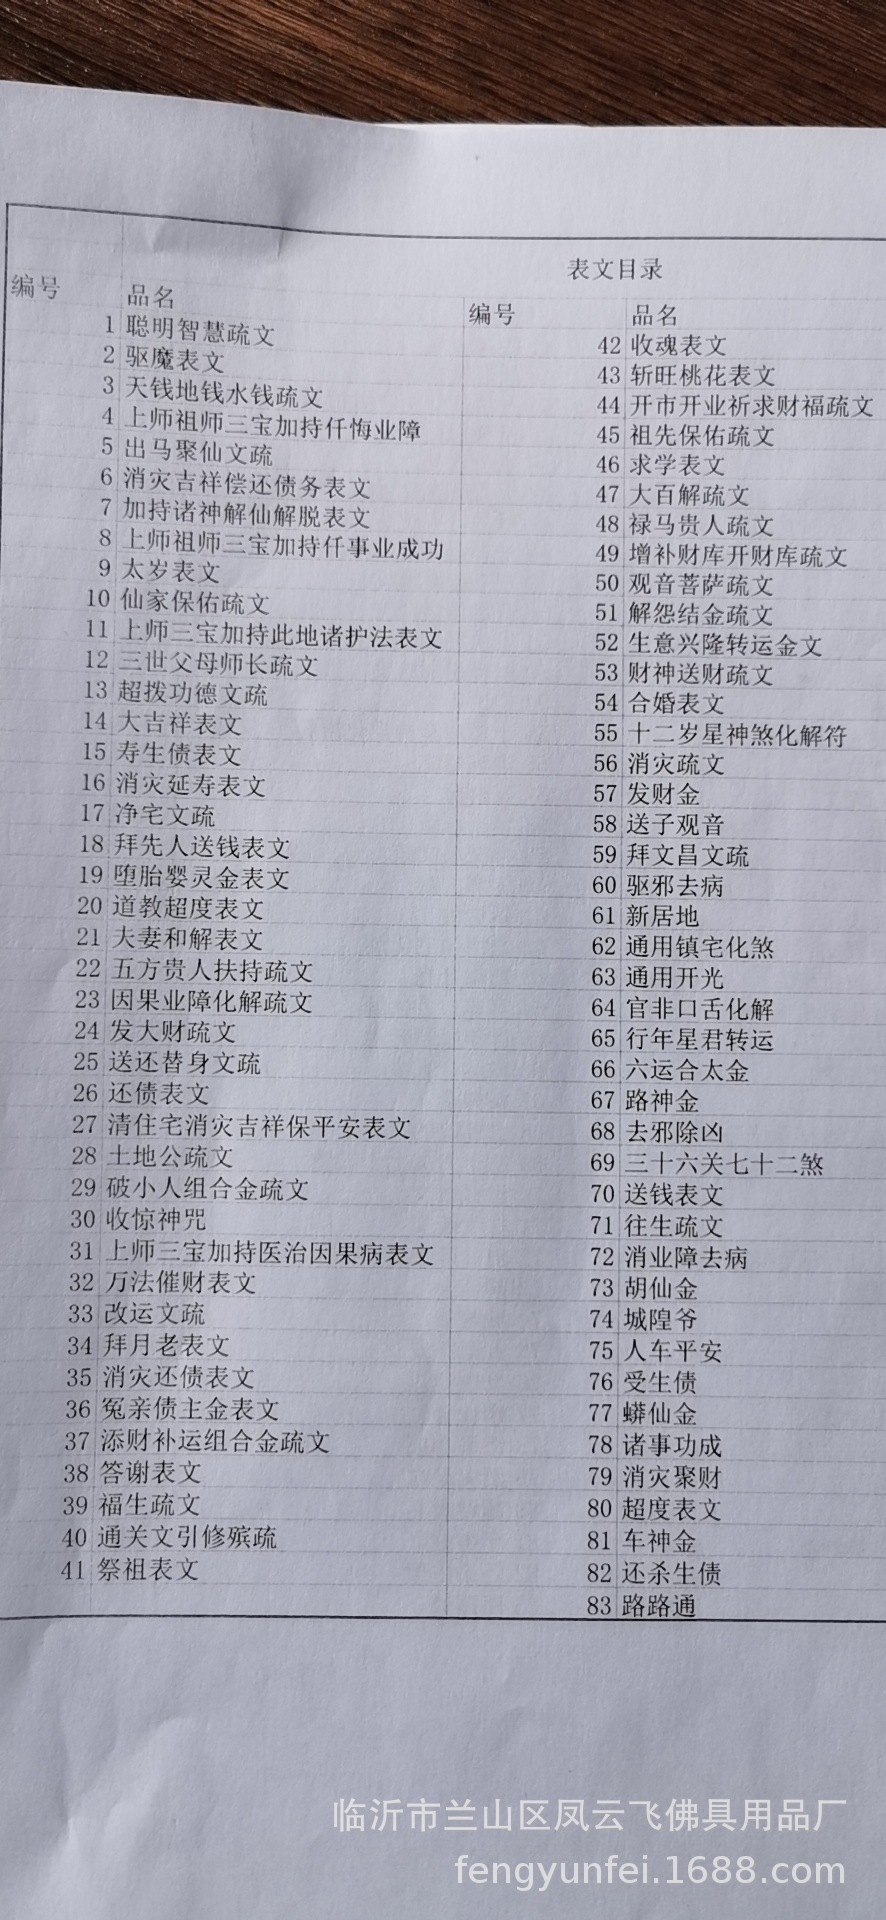 表文目录
编号 品名
1 聪明智慧疏文
2 驱魔表文
3 天钱地钱水钱疏文
4 上师祖师三宝加持仟悔业障
5 出马聚仙文疏
6 消灾吉祥偿还债务表文
7 加持诸神解仙解脱表文
8 上师祖师三宝加持仟事业成功
9 太岁表文
10 仙家保佑疏文
11 上师三宝加持此地诸护法表文
12 三世父母师长疏文
13 超拨功德文疏
14 大吉祥表文
15 寿生债表文
16 消灾延寿表文
17 净宅文疏
18 拜先人送钱表文
19 堕胎婴灵金表文
20 道教超度表文
21 夫妻和解表文
22 五方贵人扶持疏文
23 因果业障化解疏文
24 发大财疏文
25 送还替身文疏
26 还债表文
27 清住宅消灾吉祥保平安表文
28 土地公疏文
29 破小人组合金疏文
30 收惊神咒
31 上师三宝加持医治因果病表文
32 万法催财表文
33 改运文疏
34 拜月老表文
35 消灾还债表文
36 冤亲债主金表文
37 添财补运组合金疏文
38 答谢表文
39 福生疏文
40 通关文引修殡疏
41 祭祖表文
编号 品名
42 收魂表文
43 斩旺桃花表文
44 开市开业祈求财福疏文
45 祖先保佑疏文
46 求学表文
47 大百解疏文
48 禄马贵人疏文
49 增补财库开财库疏文
50 观音菩萨疏文
51 解怨结金疏文
52 生意兴隆转运金文
53 财神送财疏文
54 合婚表文
55 十二岁星神煞化解符
56 消灾疏文
57 发财金
58 送子观音
59 拜文昌文疏
60 驱邪去病
61 新居地
62 通用镇宅化煞
63 通用开光
64 官非口舌化解
65 行年星君转运
66 六运合太金
67 路神金
68 去邪除凶
69 三十六关七十二煞
70 送钱表文
71 往生疏文
72 消业障去病
73 胡仙金
74 城隍爷
75 人车平安
76 受生债
77 蟒仙金
78 诸事功成
79 消灾聚财
80 超度表文
81 车神金
82 还杀生债
83 路路通
临沂市兰山区凤云飞佛具用品厂
fengyunfei.1688.com